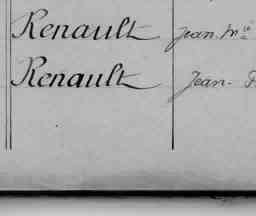 Renault Jean. Mie
Renault Jean-